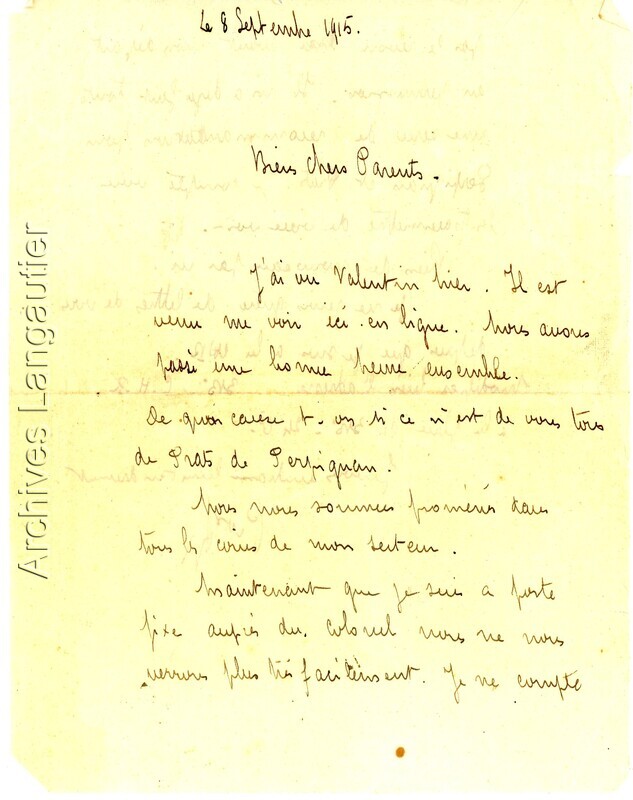 Le 8 Septembre 1915.
Biens chers Parents.
J'ai vu Valentin hier. Il est
venu me voir ici en ligne. Nous avons
passé une bonne heure ensemble.
De quoi cause t-on si ce n'est de vous tous
de Prats de Perpignan.
Nous nous sommes promenés dans
tous les coins de mon secteur.
Maintenant que je suis a poste
fixe auprès du Colonel nous ne nous
verrons plus très facilement. Je ne compte
Archives Langautier